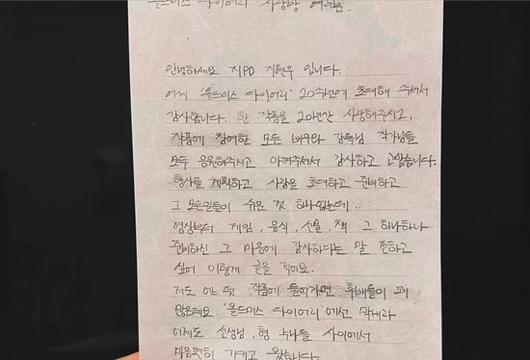 올드미스 다이어리 사랑방 여러분.
안녕하세요. 지PD 지현우 입니다.
어제 '올드미스 다이어리' 20주년에 초대해 주셔서
감사합니다. 한 작품을 20년간 사랑해주시고,
작품에 참여한 모든 배우와 감독님 작가님들
모두 응원해주시고 아껴주셔서 감사하고 고맙습니다.
행사를 계획하고 사람을 초대하고 준비하고
그 모든일들이 쉬운 것 하나없는데..
영상부터 게임, 음식, 선물, 책 그 하나하나
준비하신 그 마음에 감사하다는 말 전하고
싶어 이렇게 글을 적어요.
저도 어느덧 작품에 들어가면 후배들이 꽤
많은데요. '올드미스 다이어리'에선 막내라
어제도 선생님, 형 누나들 사이에서
마음편히 있다가 왔습니다.